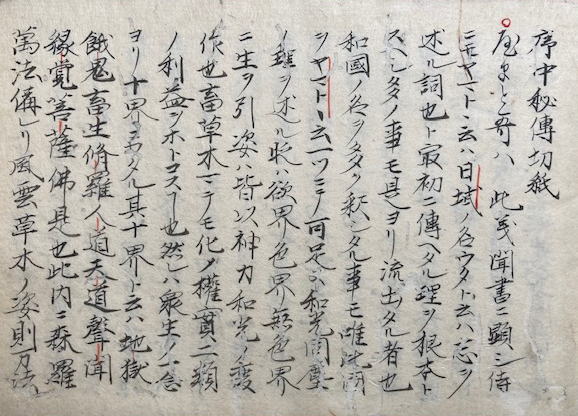 序中秘傳切紙
やまと哥ハ 此義聞書ニ顕シ侍
ニモヤマトヽ云ハ日域ノ名ウタト云ハ志ヲ
述ル詞也ト最初ニ傳ヘタル理ヲ根本ト
スヘシ多ノ事モ是ヨリ流出タル者也
和國ノ名ヲ釈シタル事モ唯此
ヲヤマトヽ云一ツニテ可足 和光同塵
ノ理ヲ述ル 欲界色界無色界
ニ生ヲ引姿ハ皆以神力和光ノ変
作也畜草木マテモ化ノ權實二類
ノ利益ヲホトコス也然レハ衆生ノ一念
ヨリ十界ニワタル其十界ト云ハ地獄
餓鬼畜生修羅人道天道聲聞
縁覚菩薩佛是也此内ニ森羅
萬法備レリ風雲草木ノ姿則万法